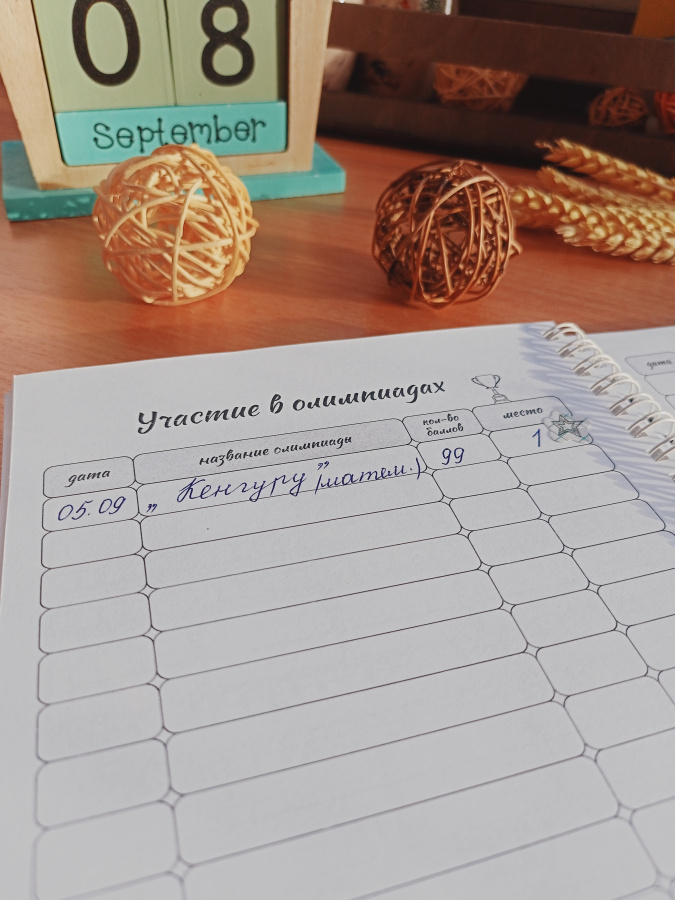 08
September
Участие в олимпиадах
дата название олимпиады кол-во баллов место
05.09 „ Кенгуру ” (матем.) 99 1
дата